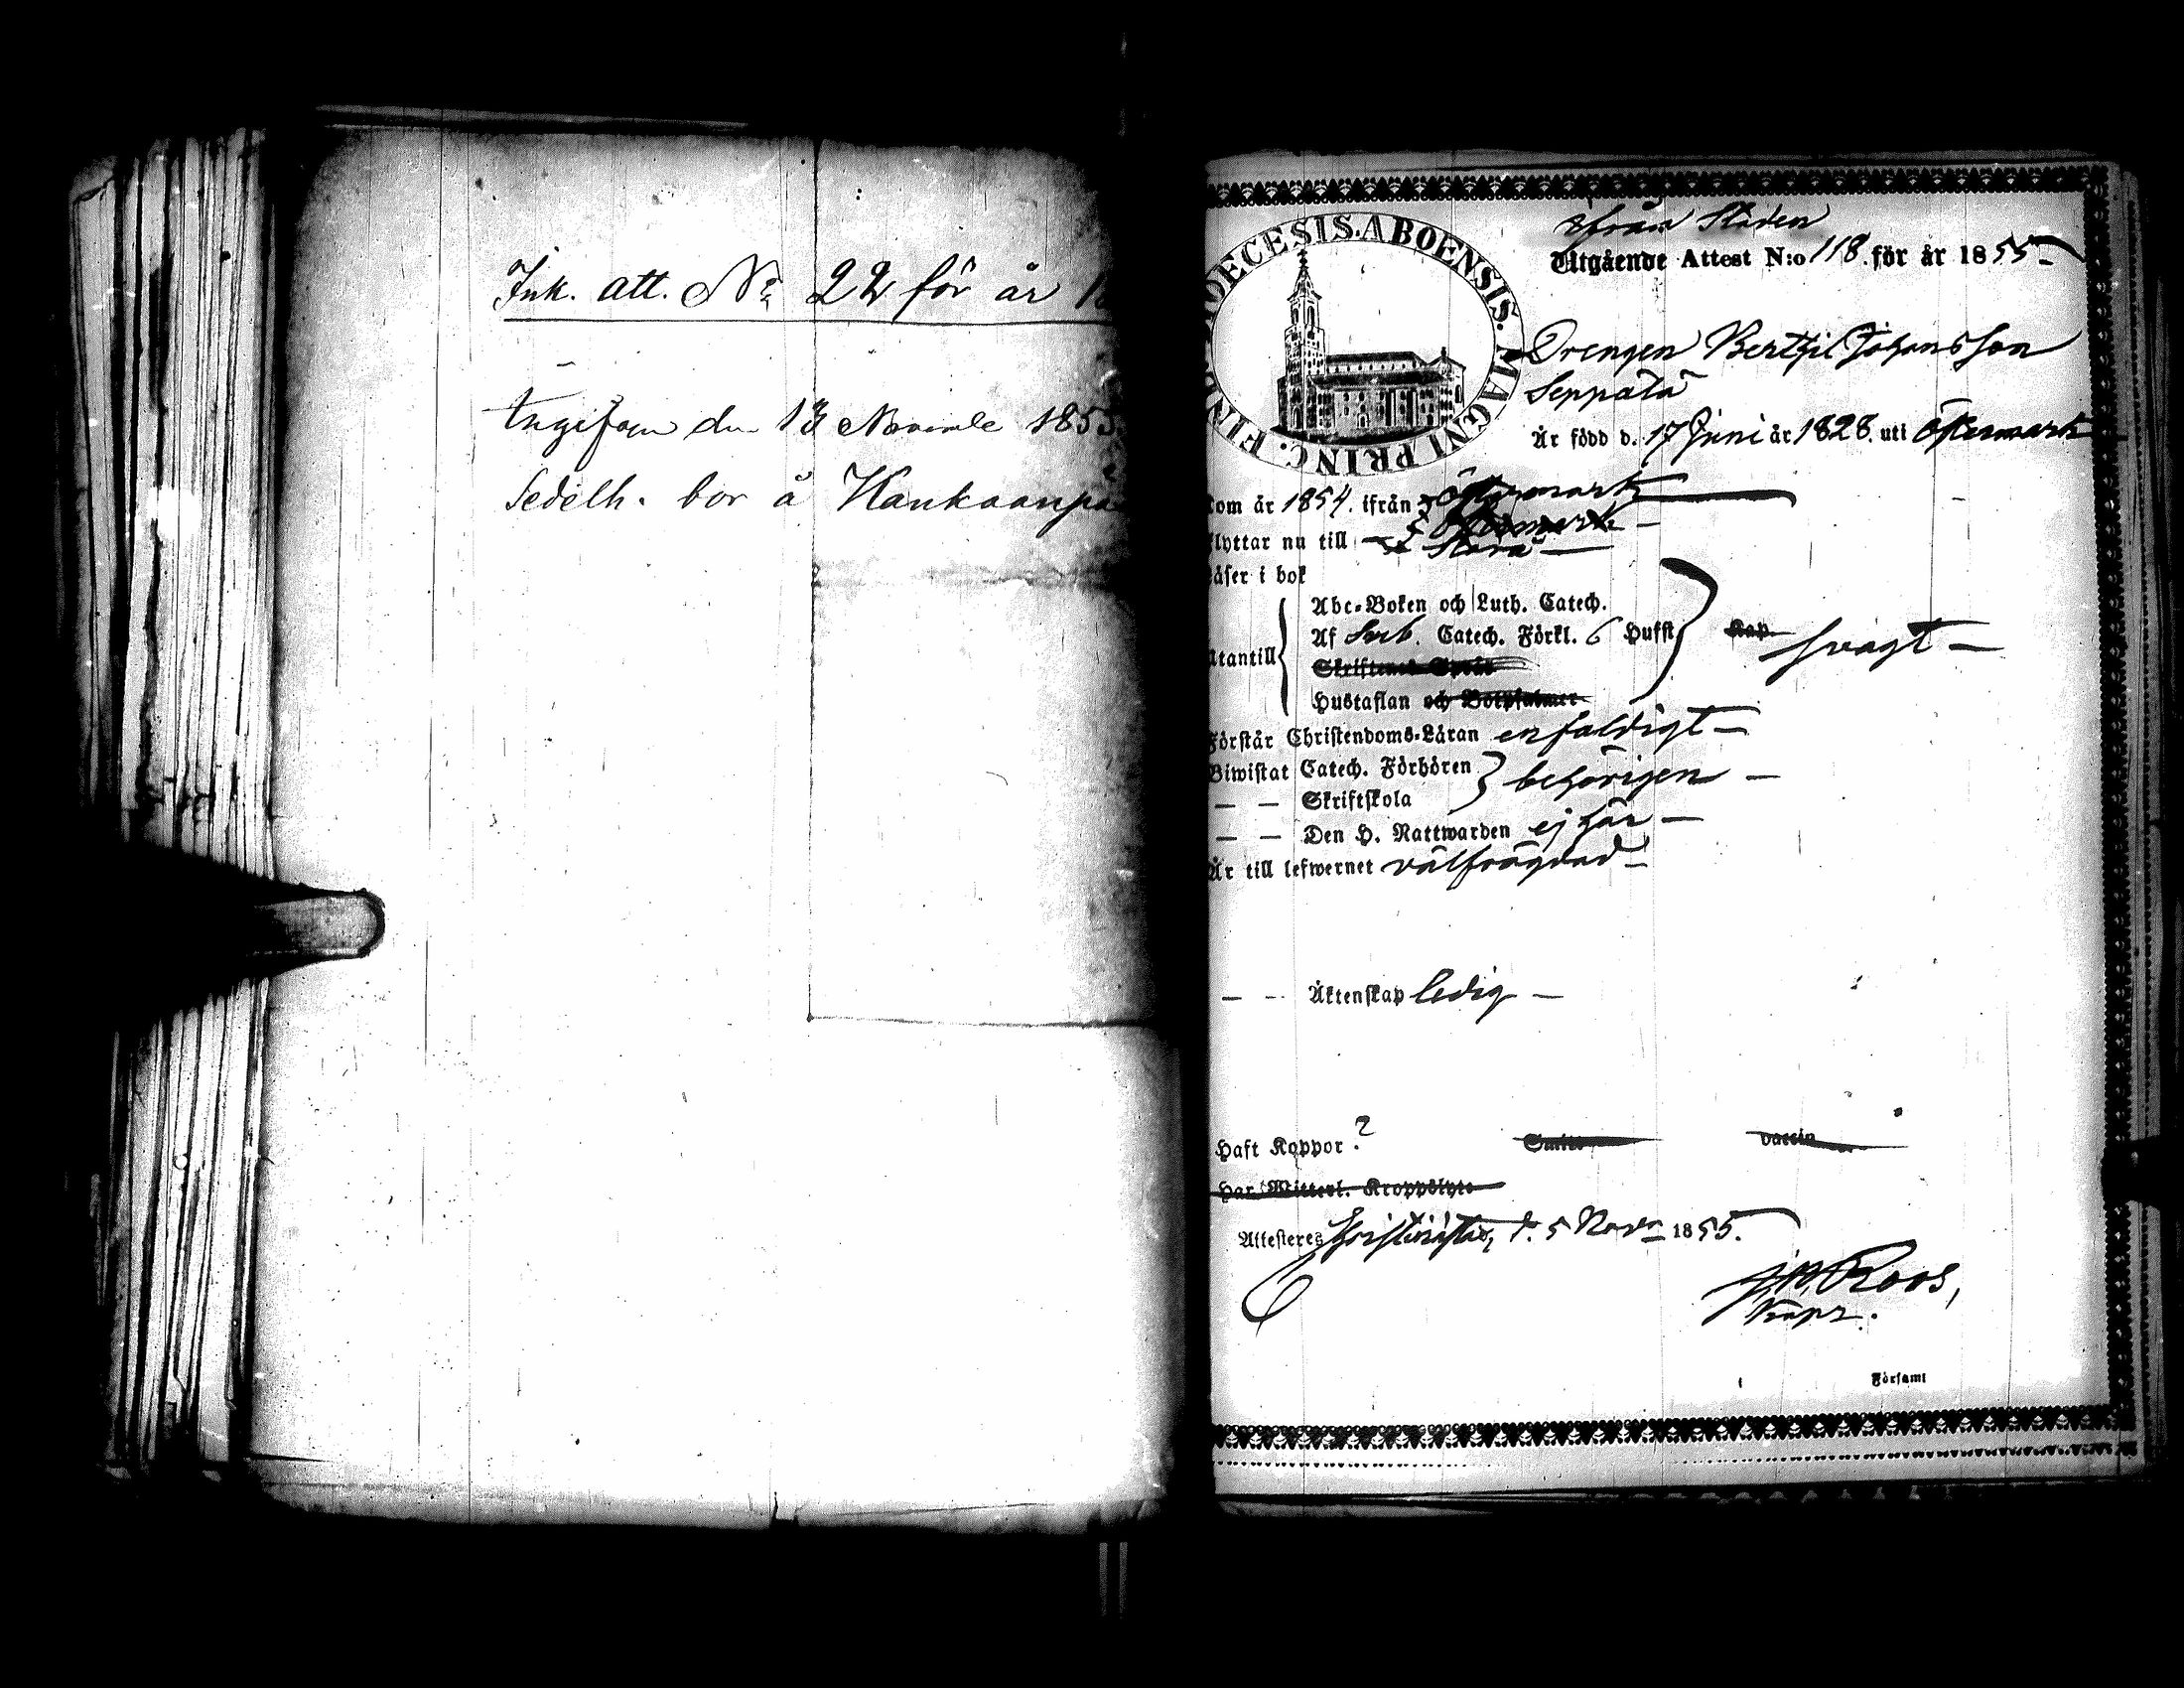 Ink. att. No 22 för år 18
Ingifven den 13 Novemb 1855
Sedelh. bor å Kankaanpä
DIOECESIS. ABOENSIS. MAGNI PRINC. FINL
ifrån Staden
Utgående Attest N:o 118. för år 1855
Drengen Berthil Johansson
Seppälä
Är född d. 17 Juni år 1828. uti Östermark
kom år 1854. ifrån Östermark
flyttar nu till Östermark
Storå
Läser i bok
Abc-Boken och Luth. Catech.
Af Sveb. Catech. Förkl. 6 Hufst Kap. svagt
Utantill
Skriftenes Språk
Hustaflan och Botpsalmer
Förstår Christendoms-Läran enfaldigt
Biwistat Catech. Förhören behörigen
— — Skriftskola
— — Den H. Nattwarden ej här
Är till lefwernet välfrägdad
— — Äktenskap ledig
Haft Koppor ? Smitt vaccin
Har Witterl. Kroppslyte
Attesteres Christinestad, d. 5 Nov. 1855.
Roos,
Kapn.
Församl